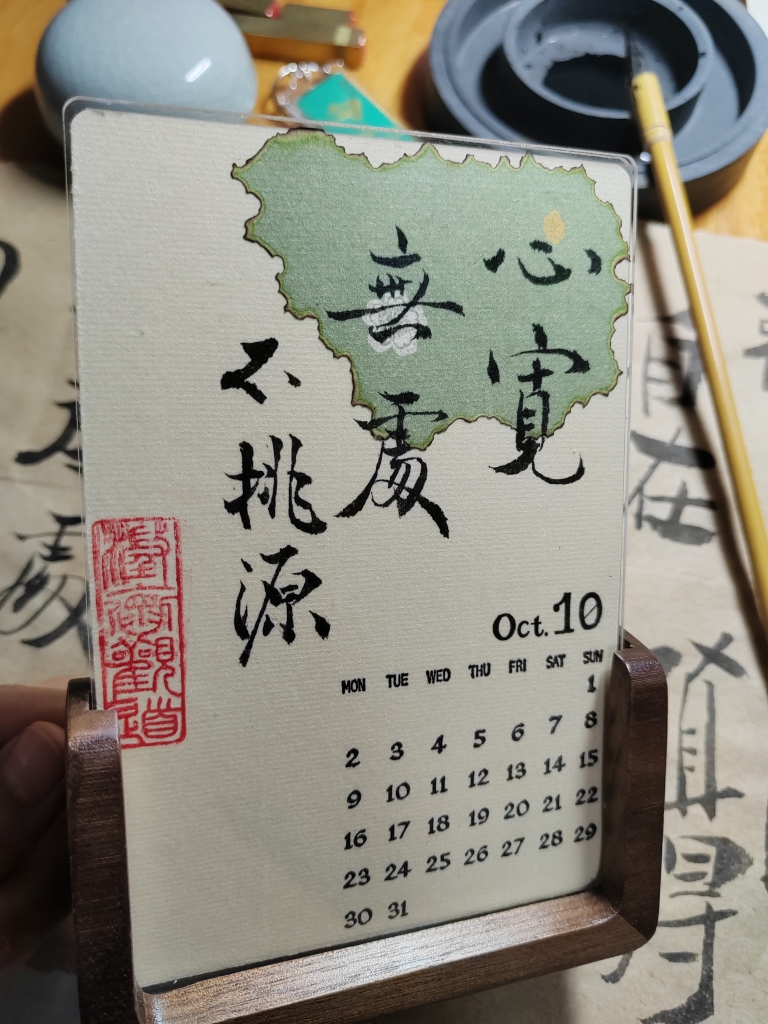 心寬
無處
不桃源
澄懷觀道
Oct.10
MON TUE WED THU FRI SAT SUN
1
2 3 4 5 6 7 8
9 10 11 12 13 14 15
16 17 18 19 20 21 22
23 24 25 26 27 28 29
30 31
自在